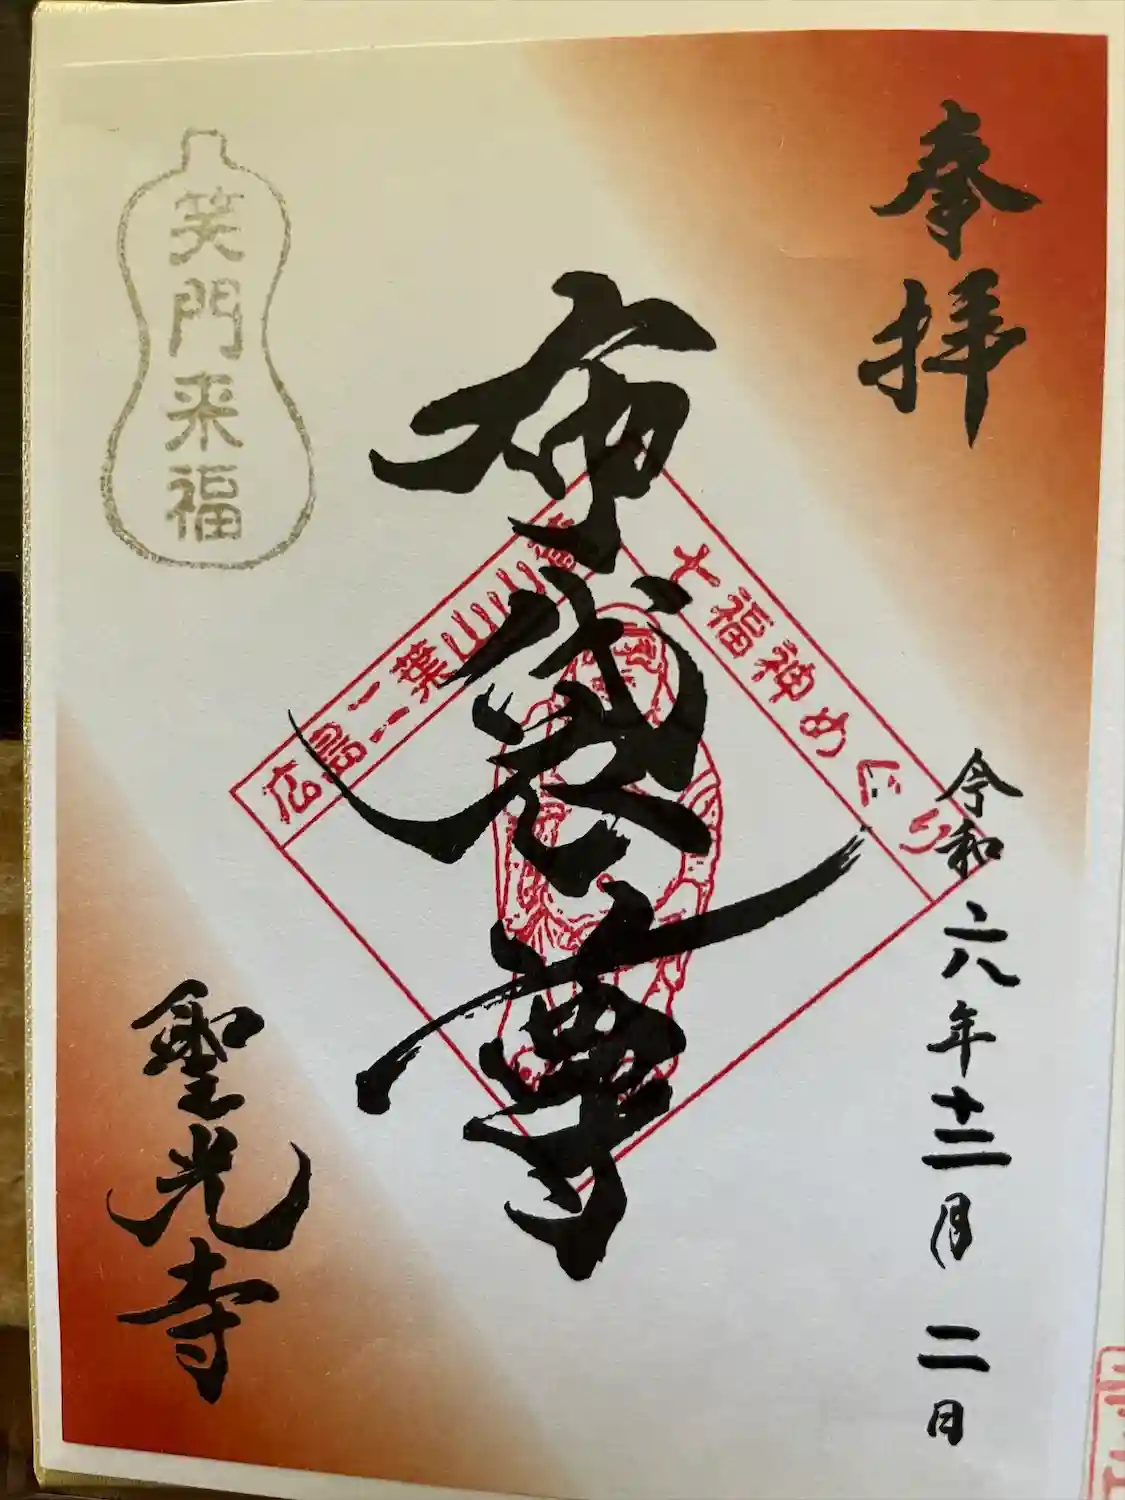 奉拝
令和六年十二月 二日
布袋尊
七福神めぐり
広島二葉山山麓
笑門来福
聖光寺